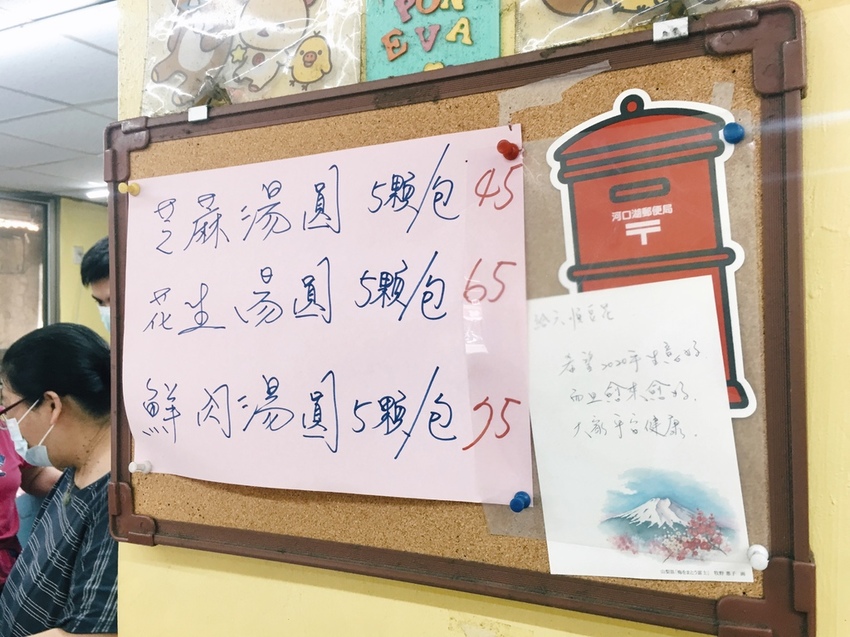 PON
EVA
芝蔴湯圓 5顆/包 45
花生湯圓 5顆/包 65
鮮肉湯圓 5顆/包 75
河口湖郵便局
〒
給天恒豆花
希望2020年生意好
而且愈來愈好,
大家平安健康.